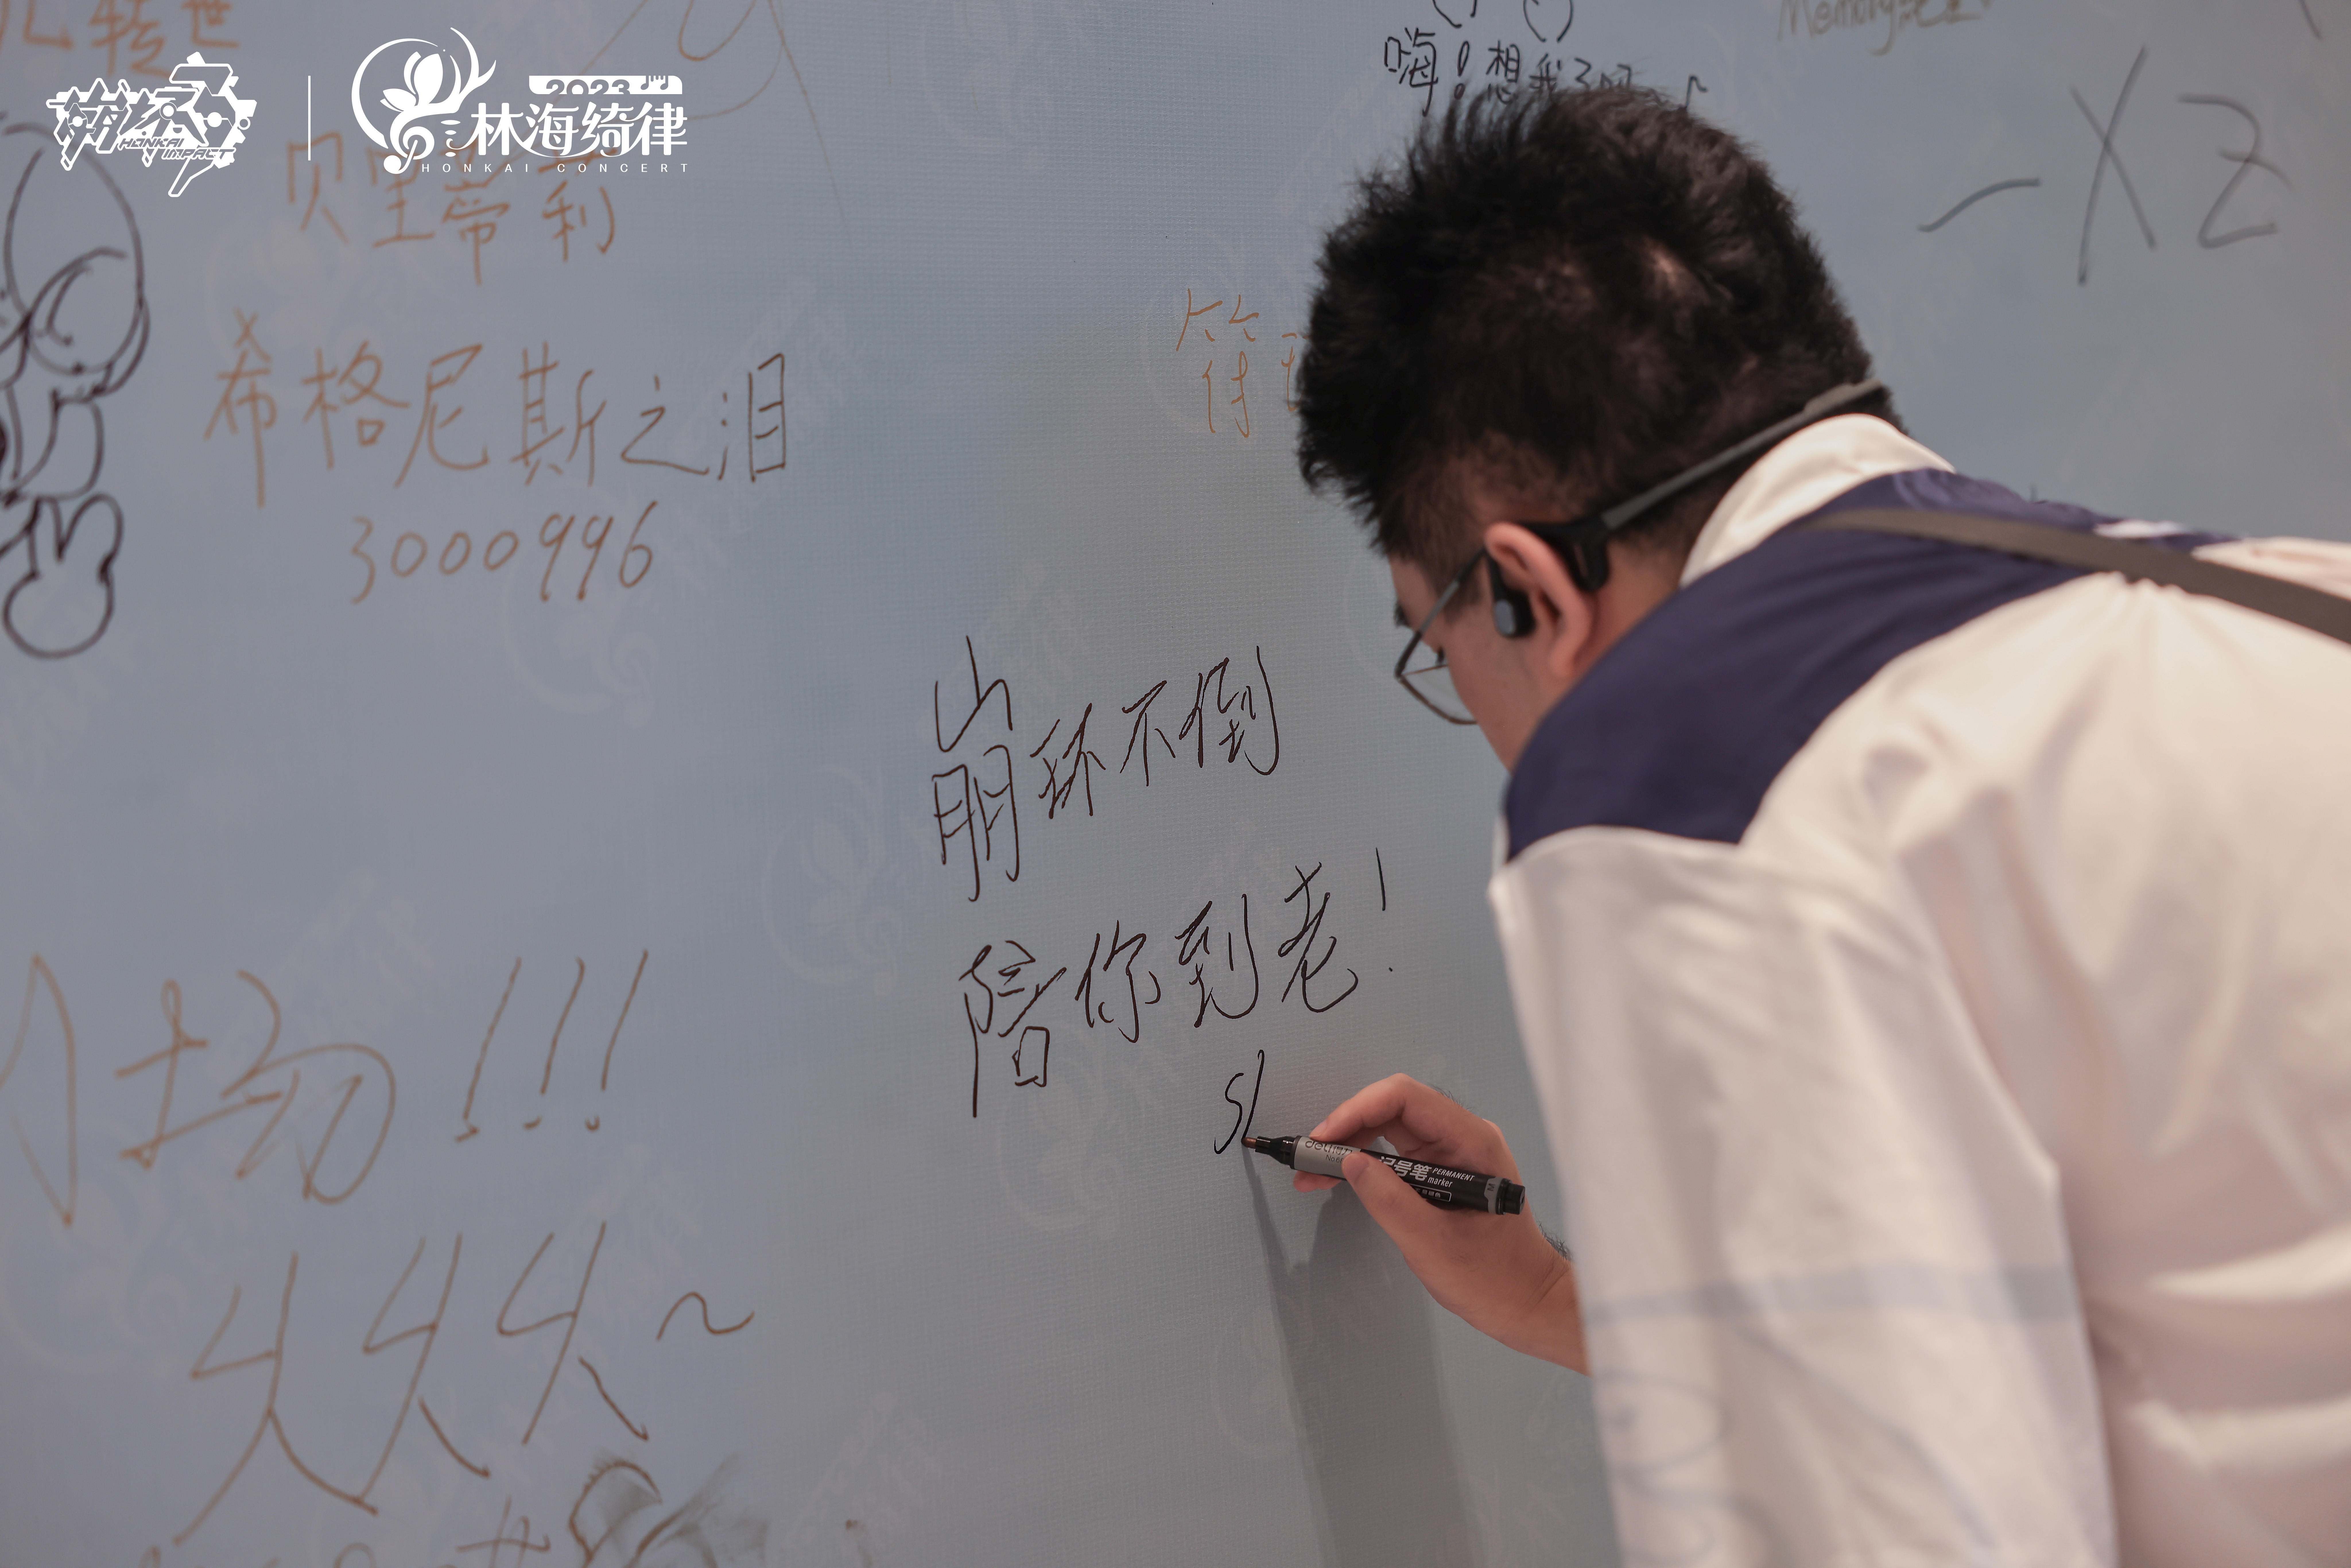 转世
崩坏3
HONKAI IMPACT
2023
林海绮律
HONKAI CONCERT
嗨！想我了吗
Memory
-XZ
贝里蒂利
希格尼斯之泪
3000996
符
崩坏不倒
陪你到老！
扬！！！
～
deli
记号笔 PERMANENT
marker